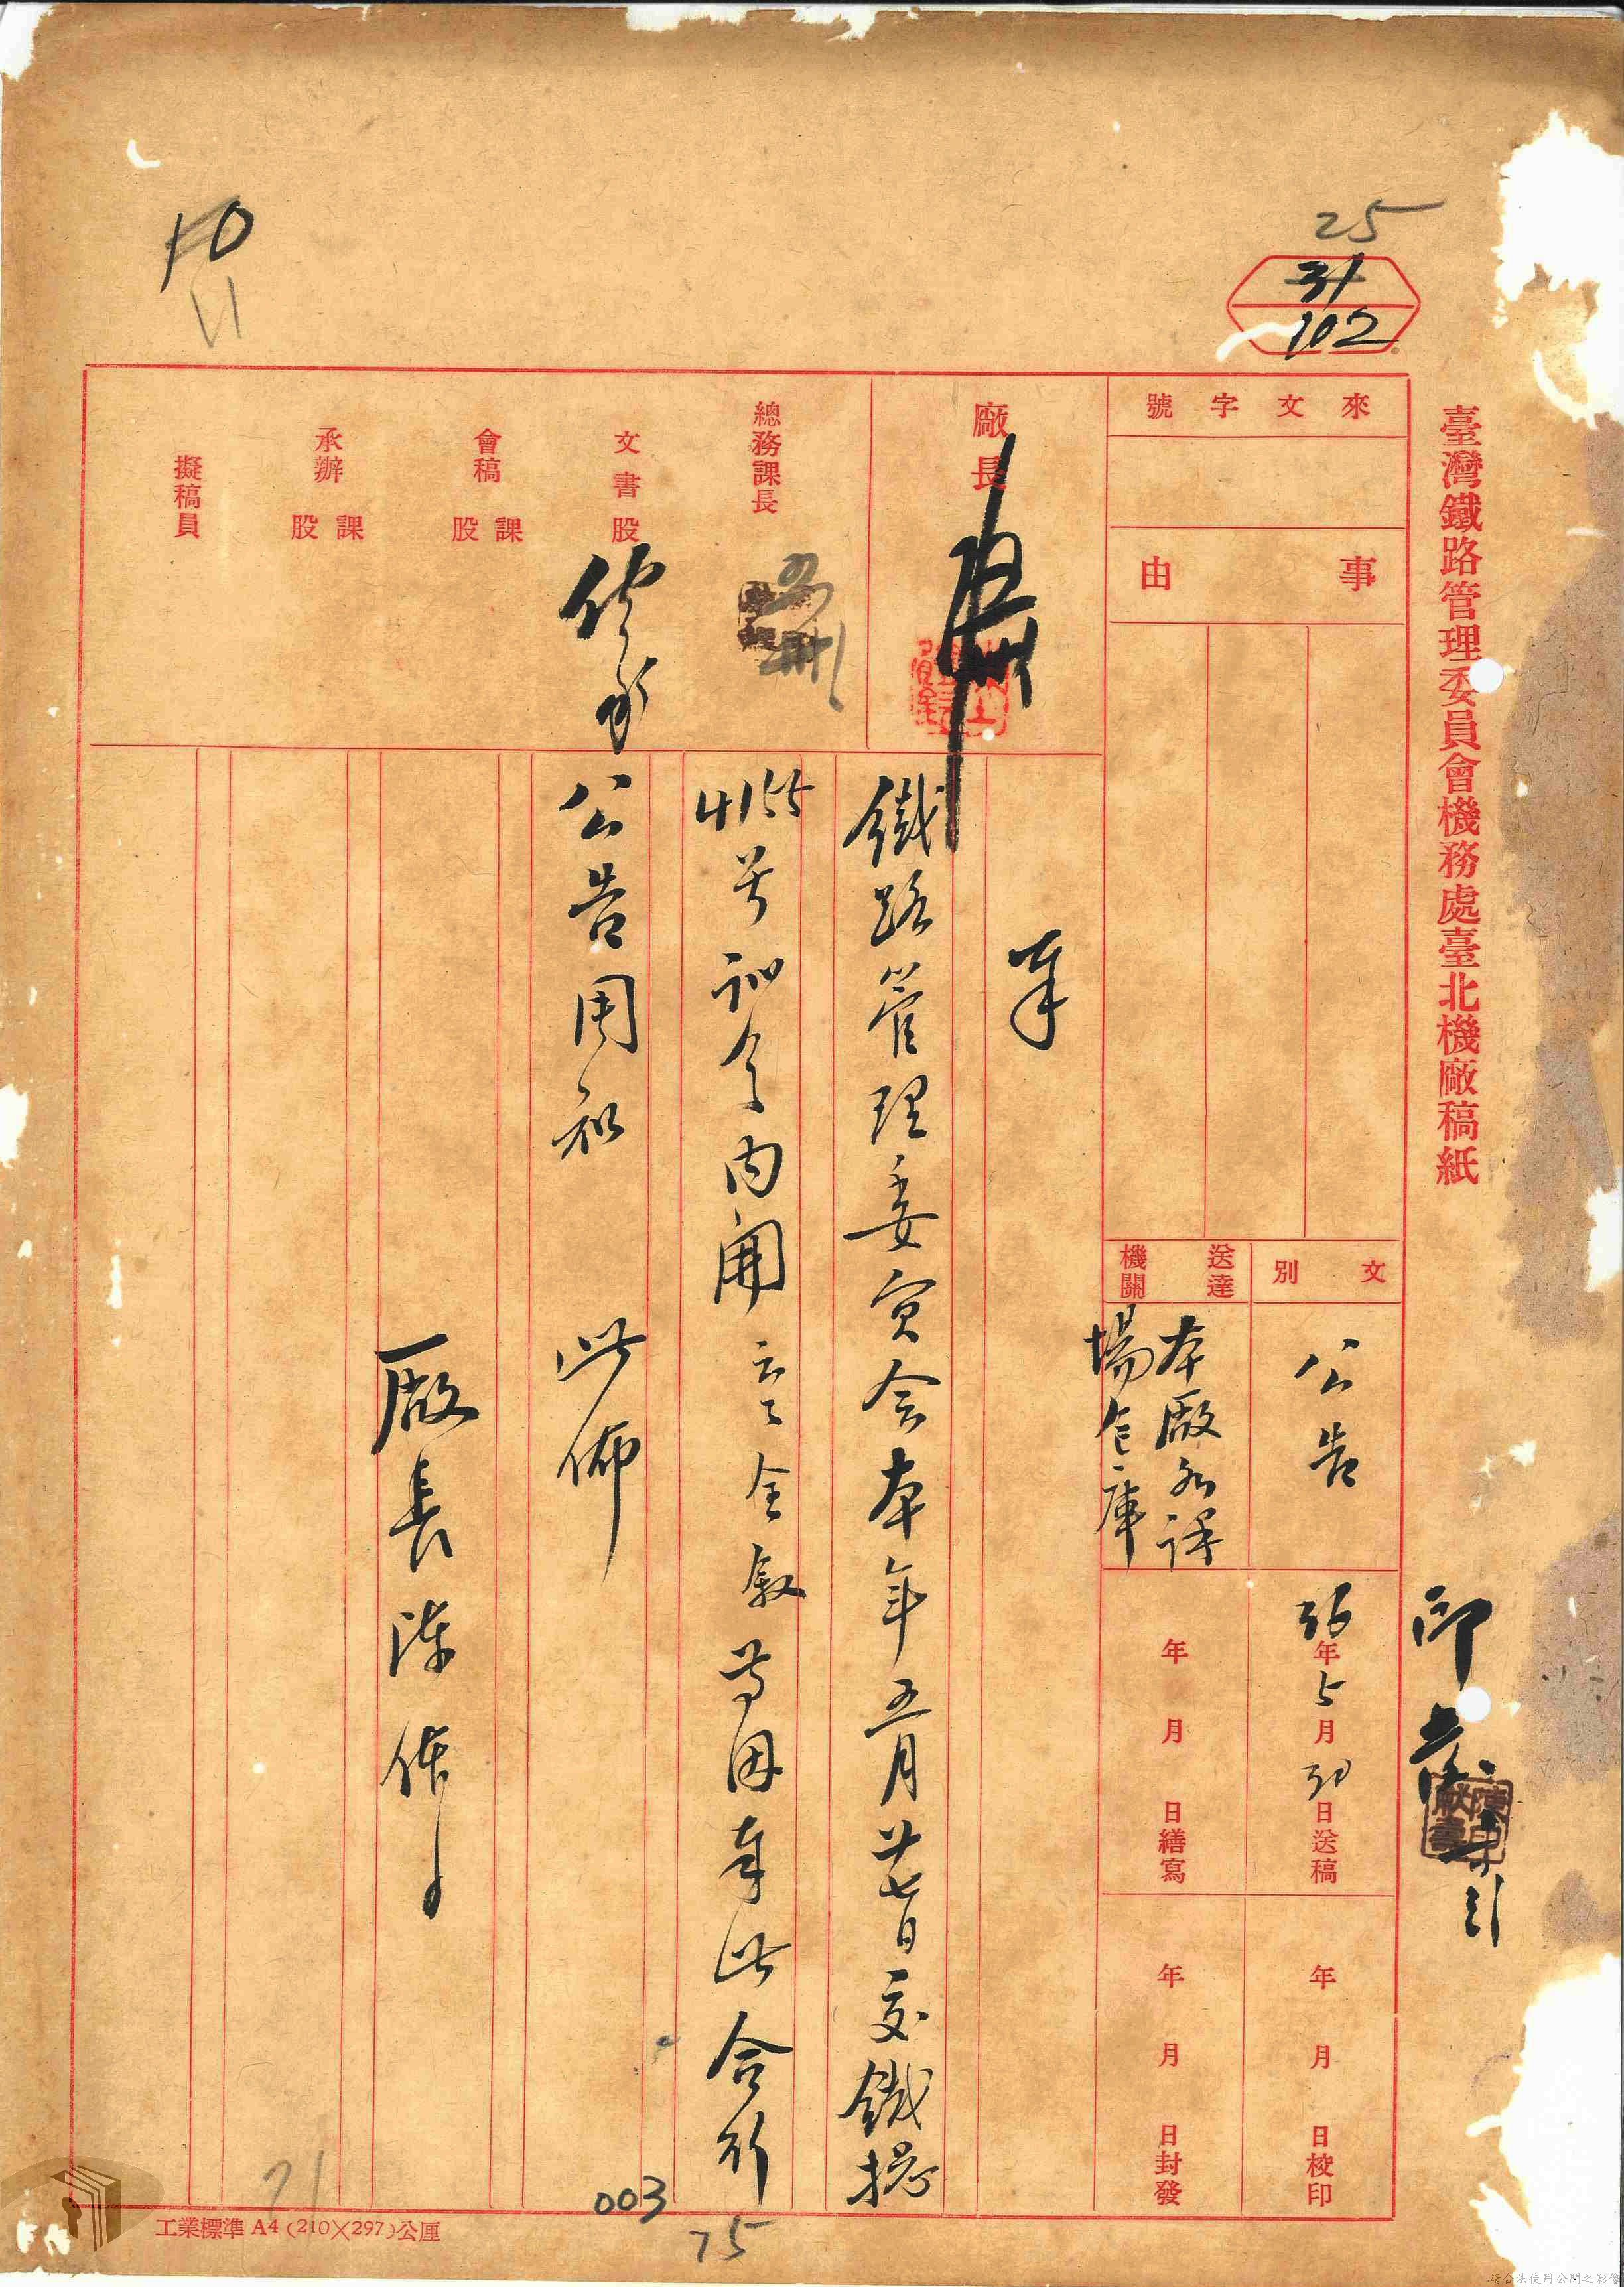 25
31
102
10
11
臺灣鐵路管理委員會機務處臺北機廠稿紙
來文字號
事由
文別
公告
送達機關
本廠各課
場倉庫
35年5月30日送稿
年月日繕寫
年月日校印
年月日封發
廠長
總務課長
文書股
會稿課股
承辦課股
擬稿員
奉
鐵路管理委員會本年五月廿七日交鐵總
4155号訓令内開云云全敘等因奉此合行
公告周知 此佈
廠長陳
印
003
75
71
工業標準 A4 (210×297)公厘
請合法使用公開之影像